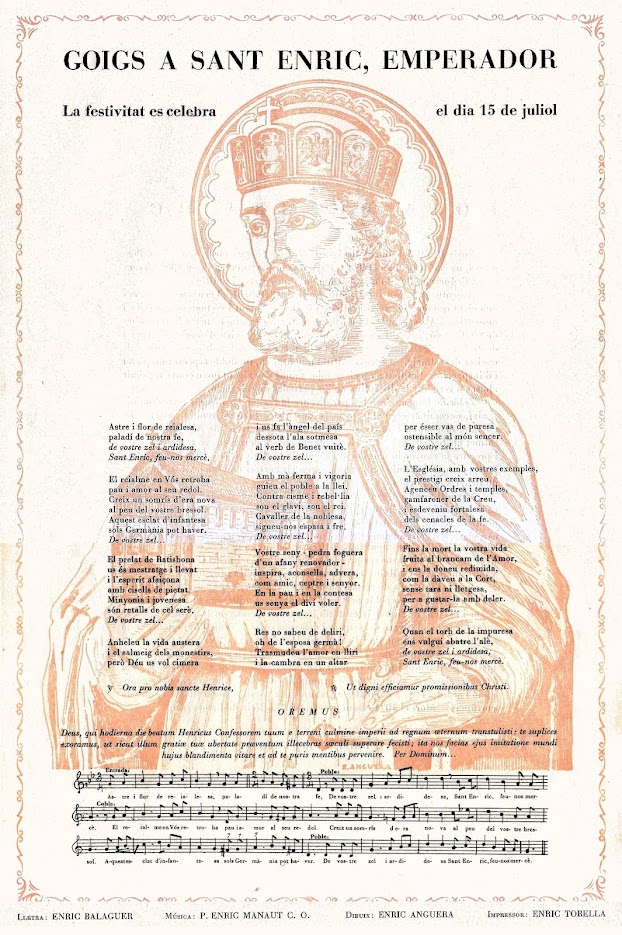 GOIGS A SANT ENRIC, EMPERADOR
La festivitat es celebra el dia 15 de juliol
Astre i flor de reialesa,
paladí de nostra fe,
de vostre zel i ardidesa,
Sant Enric, feu-nos mercè.
El reialme en Vós retroba
pau i amor al seu redol.
Creix un somrís d'era nova
al peu del vostre bressol.
Aquest esclat d'infantesa
sols Germània pot haver.
De vostre zel...
El prelat de Ratisbona
us és mestratge i llevat
i l'esperit afaiçona
amb cisells de pietat.
Minyonia i jovenesa
són retalls de cel serè.
De vostre zel...
Anheleu la vida austera
i el salmeig dels monestirs,
però Déu us vol cimera
i us fa l'àngel del país
dessota l'ala sotmesa
al verb de Benet vuitè.
De vostre zel...
Amb mà ferma i vigoria
guieu el poble a la llei.
Contra cisme i rebel·lia
sou el glavi, sou el rei.
Cavaller de la noblesa,
sigueu-nos espasa i fre.
De vostre zel...
Vostre seny - pedra foguera
d'un afany renovador -
inspira, aconsella, advera,
com amic, ceptre i senyor.
En la pau i en la contesa
us senya el diví voler.
De vostre zel...
Res no sabeu de deliri,
oh de l'esposa germà!
Trasmudeu l'amor en lliri
i la cambra en un altar
per ésser vas de puresa
ostensible al món sencer.
De vostre zel...
L'Església, amb vostres exemples,
el prestigi creix arreu.
Agenceu Ordres i temples,
gamfaroner de la Creu,
i esdeveniu fortalesa
dels cenacles de la fe.
De vostre zel...
Fins la mort la vostra vida
fruita al brancam de l'Amor,
i ens la doneu redimida,
com la dàveu a la Cort,
sense tara ni lletgesa,
per a gustar-la amb deler.
De vostre zel...
Quan el torb de la impuresa
ens vulgui abatre l'alè,
de vostre zel i ardidesa,
Sant Enric, feu-nos mercè.
℣ Ora pro nobis sancte Henrice,
℟ Ut digni efficiamur promissionibus Christi.
OREMUS
Deus, qui hodierna die beatum Henricus Confessorem tuum e terreni culmine imperii ad regnum æternum transtulisti: te suplices
exoramus, ut sicut illum gratiæ tuæ ubertate præventum illecebras sæculi superare fecisti; ita nos facias ejus imitatione mundi
hujus blandimenta vitare et ad te puris mentibus pervenire. Per Dominum...
E. ANGUERA
Entrada: Poble:
As- tre i flor de re-ia- lesa, pa- la- dí de nos-tra fe, De vos- tre zel i ar- di- de- sa, Sant En- ric, feu- nos mer-
Cobla:
cè. El re- ial- me en Vós re- tro- ba pau i a- mor al seu re- dol. Creix un som-rís d'e- ra no- va al peu del vos- tre bres-
Poble:
sol. A-quest es- clat d'in-fan- te- sa sols Ger- mà- nia pot ha- ver. De vos- tre zel i ar- di- de- sa Sant En- ric, feu-nos mer- cè.
LLETRA: ENRIC BALAGUER MÚSICA: P. ENRIC MANAUT C. O. DIBUIX: ENRIC ANGUERA IMPRESSOR: ENRIC TOBELLA